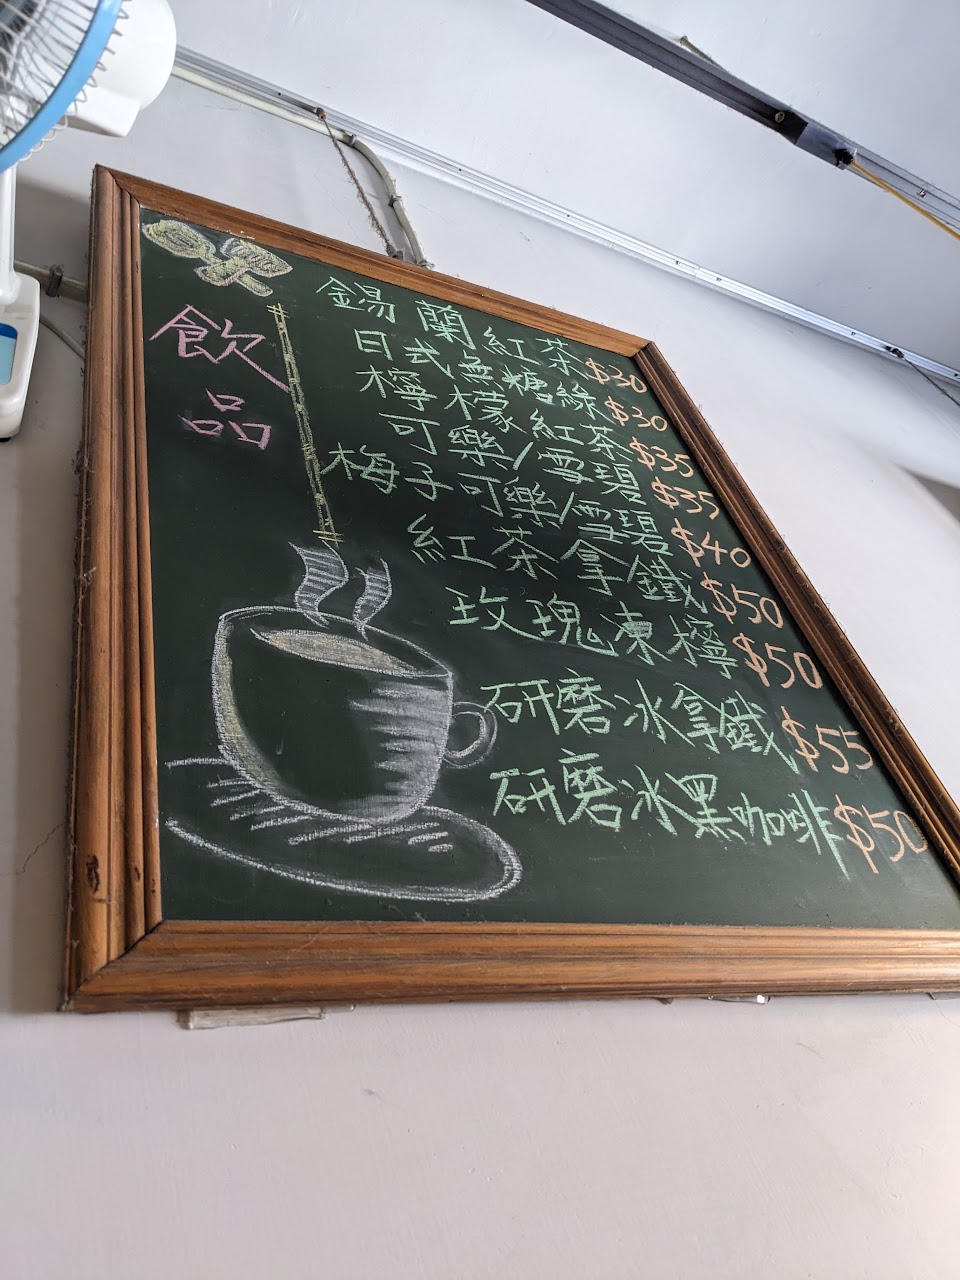 飲品
錫蘭紅茶 $30
日式無糖綠 $30
檸檬紅茶 $35
可樂/雪碧 $35
梅子可樂/雪碧 $40
紅茶拿鐵 $50
玫瑰凍檸 $50
研磨冰拿鐵 $55
研磨冰黑咖啡 $50